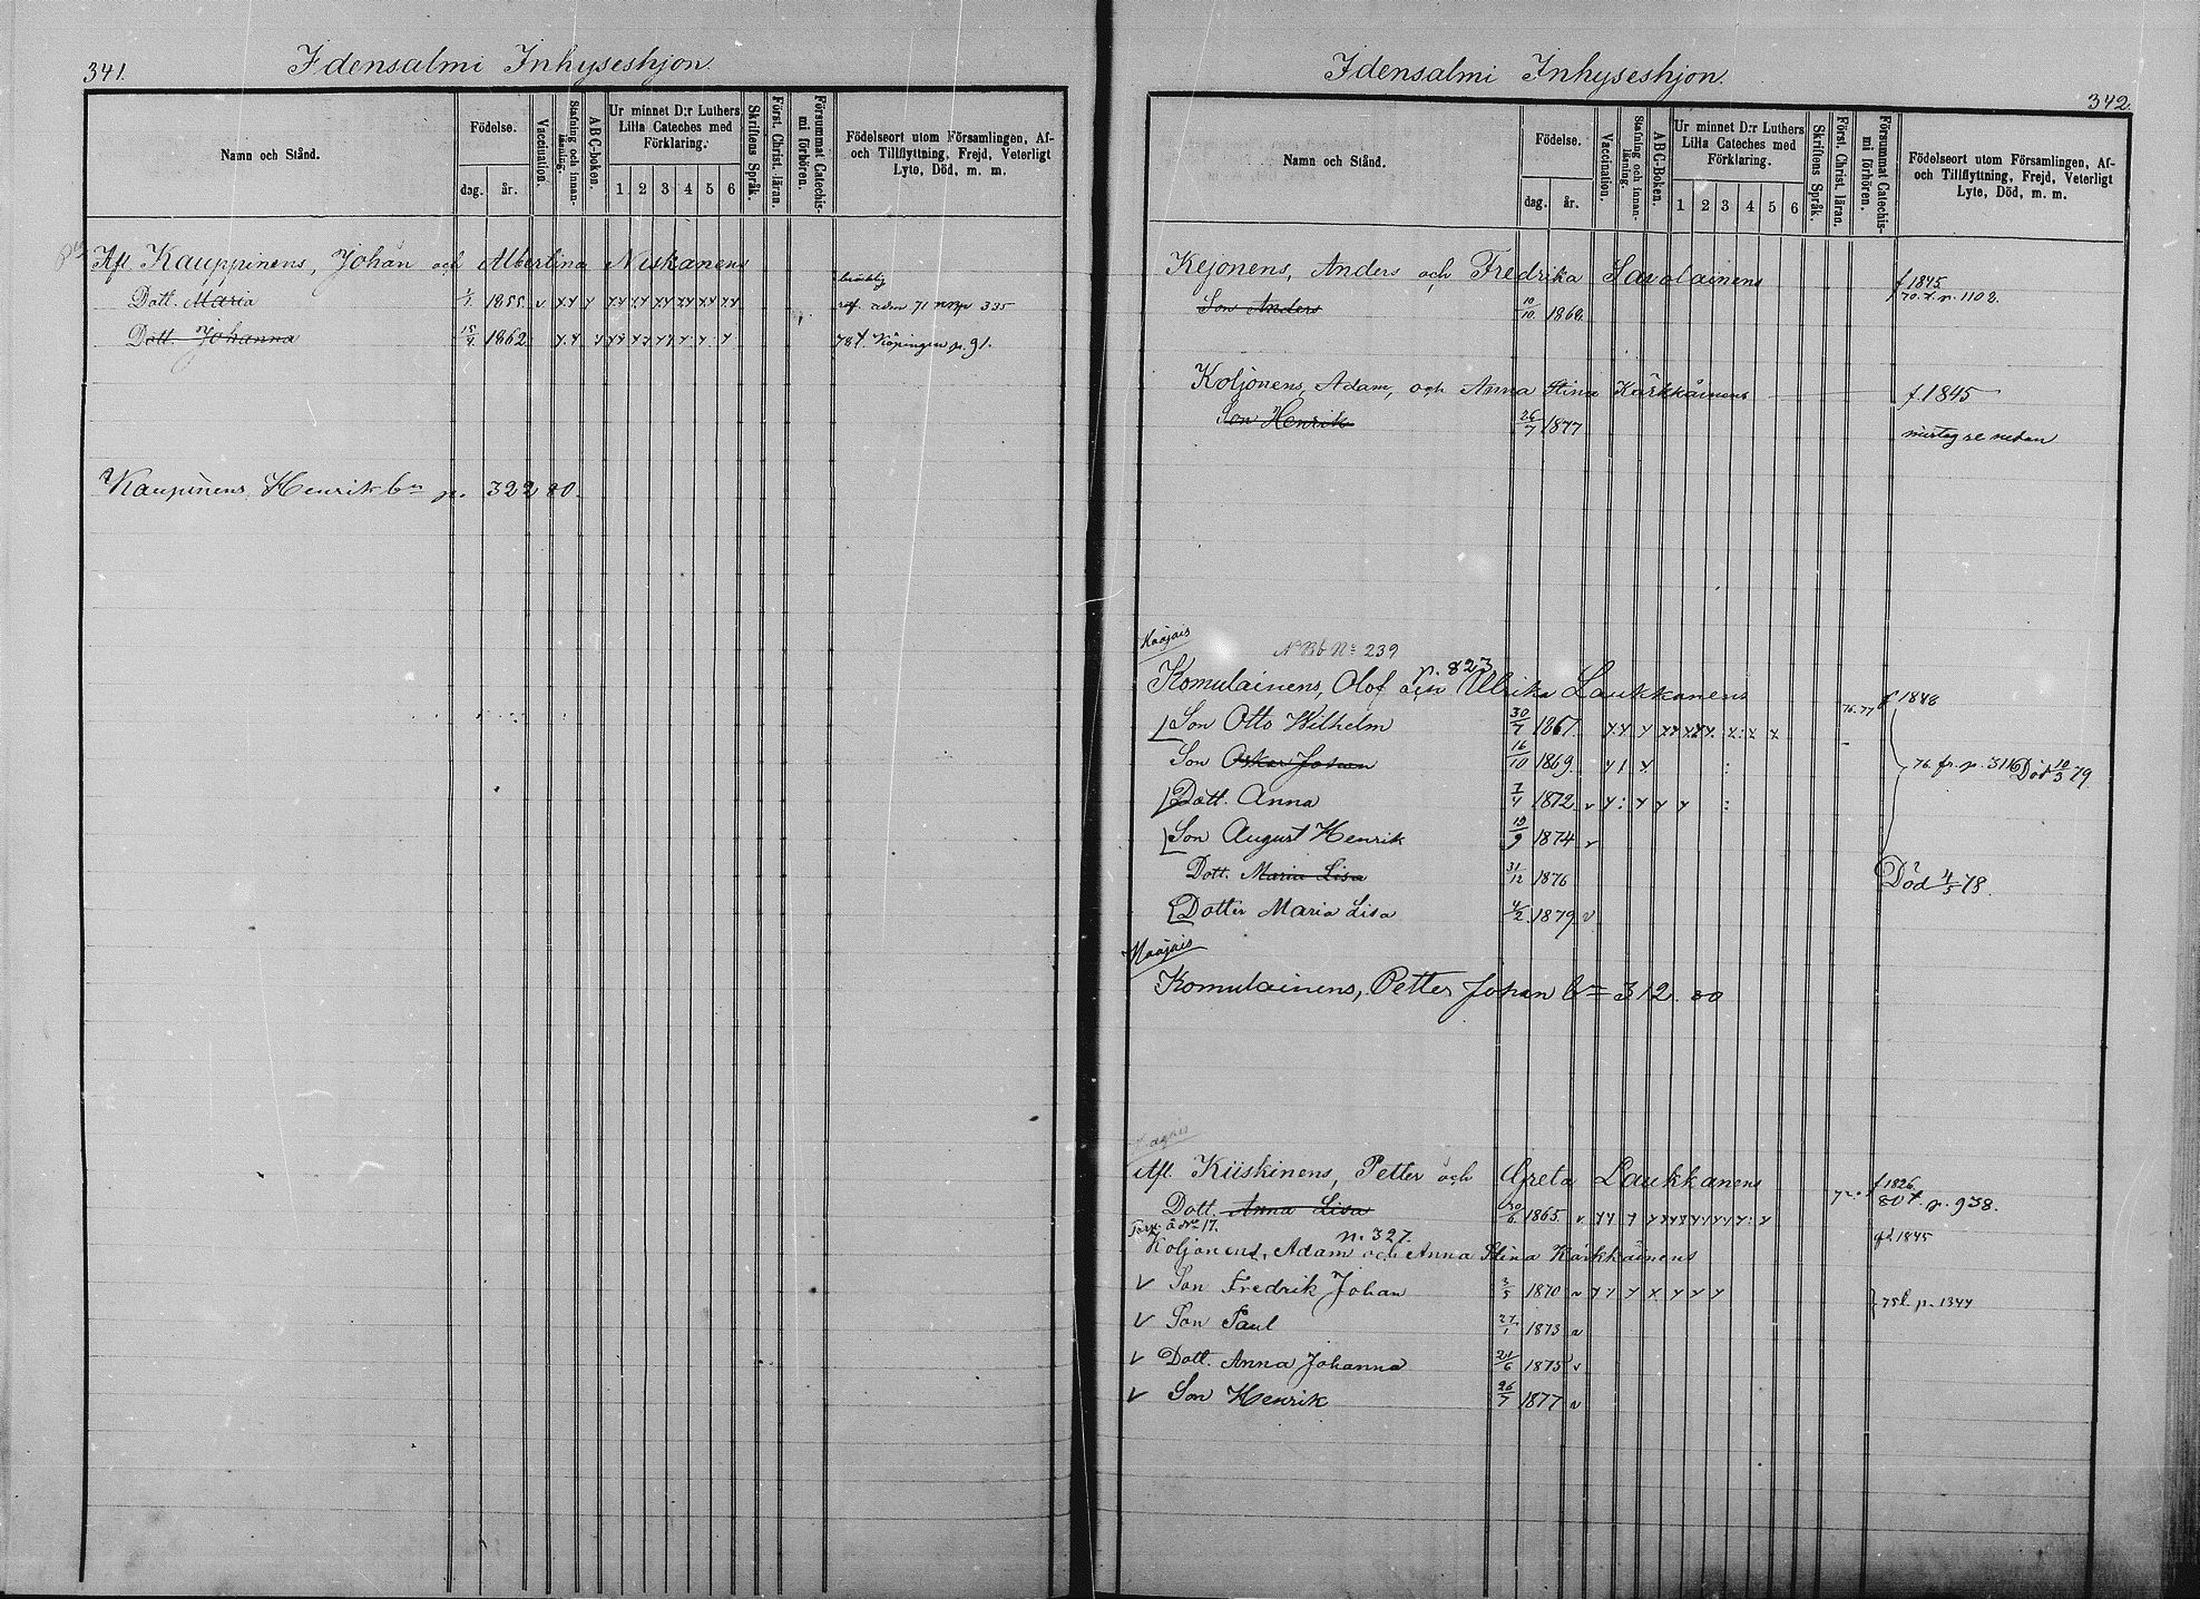 341.
Idensalmi Inhyseshjon.
Namn och Stånd.
Födelse.
dag. år.
Vaccination.
Stafning och innan-läsning.
ABC-boken.
Ur minnet D:r Luthers Lilla Cateches med Förklaring.
1 2 3 4 5 6
Skriftens Språk.
Först. Christ. läran.
Försummat Catechis-mi förhören.
Födelseort utom Församlingen, Af- och Tillflyttning, Frejd, Veterligt Lyte, Död, m. m.
Afl. Kauppinens, Johan och Albertina Niskanens
Dott. Maria 1/1 1855 v
adm 71 335
Dott. Johanna 15/4 1862 78 f. Köpingen p. 91.
Kaupinens, Henrik bn p. 322 80.
Idensalmi Inhyseshjon.
342.
Namn och Stånd.
Födelse.
dag. år.
Vaccination.
Stafning och innan-läsning.
ABC-Boken.
Ur minnet D:r Luthers Lilla Cateches med Förklaring.
1 2 3 4 5 6
Skriftens Språk.
Först. Christ. läran.
Försummat Catechis-mi förhören.
Födelseort utom Församlingen, Af- och Tillflyttning, Frejd, Veterligt Lyte, Död, m. m.
Kejonens, Anders och Fredrika Savolainens f 1845
Son Anders 10/10 1868. 70. f. p. 1102.
Koljonens, Adam, och Anna Stina Kärkkäinens f. 1845
Son Henrik 26/7 1877 misstag se nedan
Haajais
No 239
p. 823
Komulainens, Olof och Ulrika Laukkanens f 1848
Son Otto Wilhelm 30/7 1867. 76. 77
Son Oskar Johan 16/10 1869. 76. fr. p. 311 Död 10/3 79.
Dott. Anna 7/4 1872 v
Son August Henrik 19/9 1874 v
Dott. Maria Lisa 31/12 1876 Död 4/5 78.
Dotter Maria Lisa 4/2 1879 v
Haajais
Komulainens, Petter Johan bn 312. 80
Afl. Kiiskinens, Petter och Greta Laukkanens f 1826.
Dott. Anna Lisa 1865. v 80 f. p. 938.
Torp. å No 17.
p. 327.
Koljonens, Adam och Anna Stina Kärkkäinens f 1845
v Son Fredrik Johan 3/5 1870 v 75 p. 1344
v Son Paul 27/1 1873 v
v Dott. Anna Johanna 21/6 1875 v
v Son Henrik 26/7 1877 v